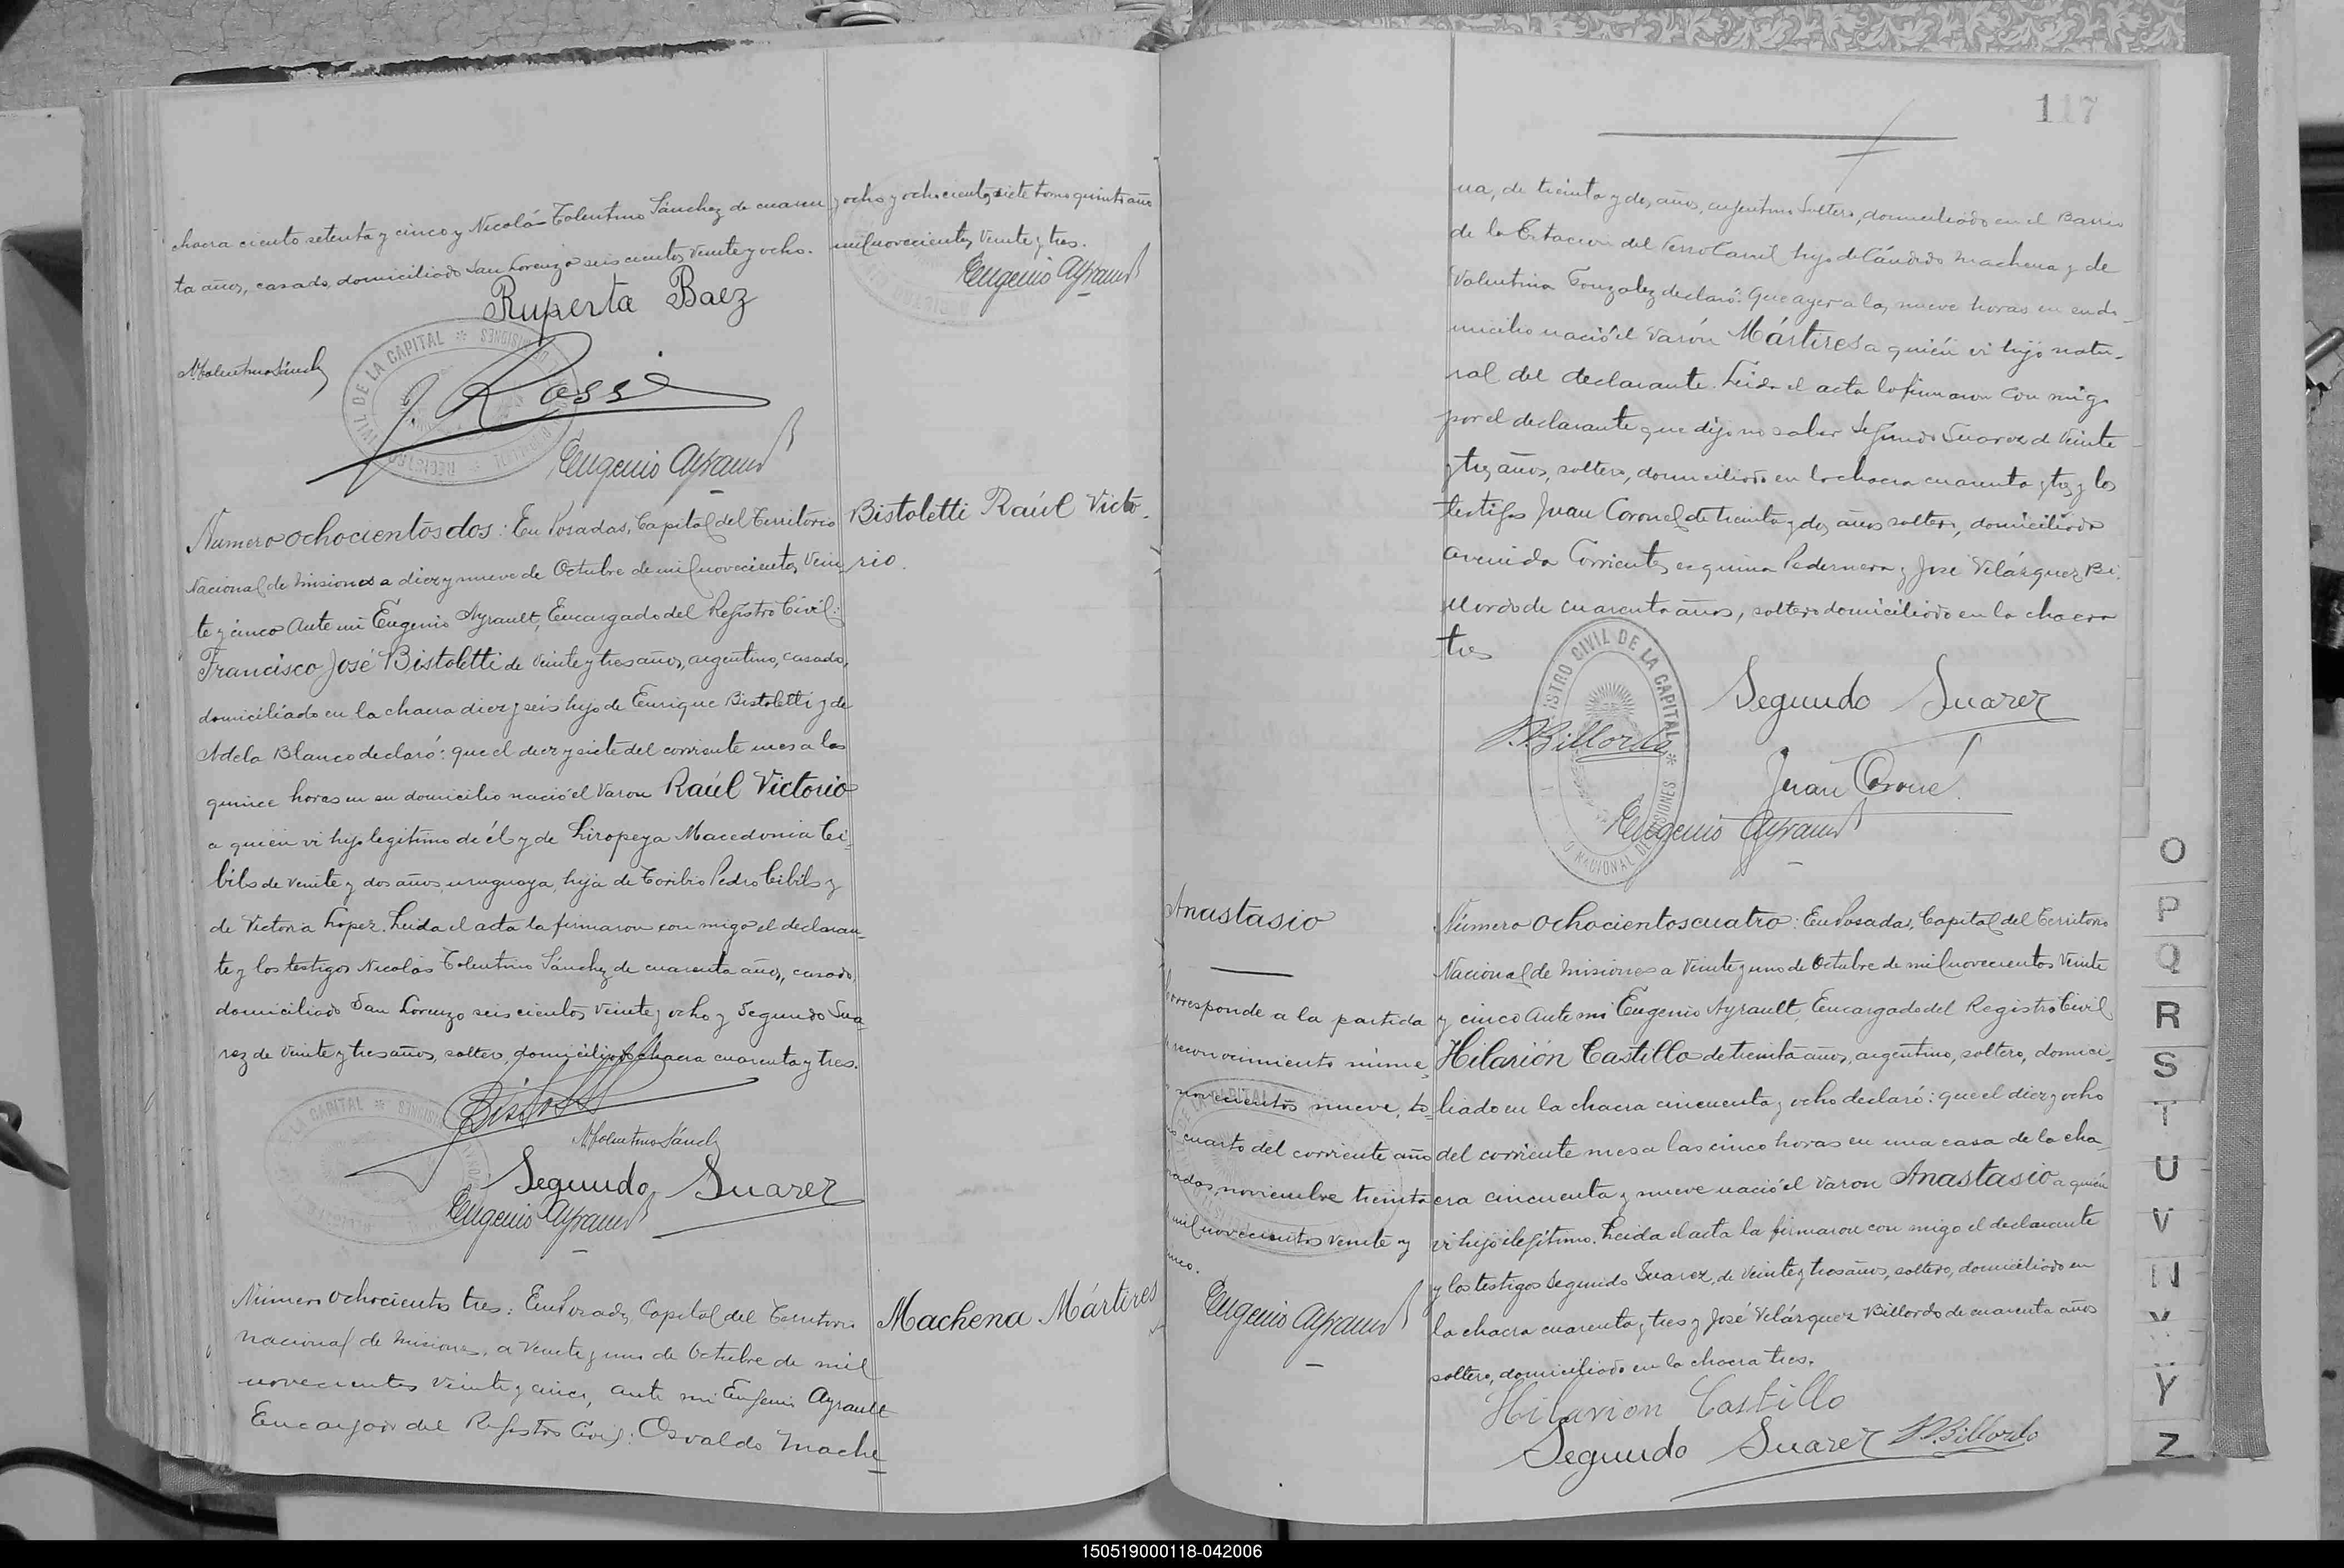 chacra ciento setenta y cinco y Nicolás Tolentino Sánchez de cuaren
ta años, casado, domiciliado San Lorenzo seis cientos veinte y ocho.
Ruperta Baez
N. Tolentino Sánch
J. Rossi
REGISTRO CIVIL DE LA CAPITAL * MISIONES
Eugenio Ayrault
y ocho y ochocientos siete tomo quinto año
mil novecientos veinte y tres.
Eugenio Ayrault
Número ochocientos dos: En Posadas, Capital del Territorio
Nacional de Misiones a diez y nueve de Octubre de mil novecientos Vein
te y cinco Ante mi Eugenio Ayrault, Encargado del Registro Civil:
Francisco José Bistoletti de veinte y tres años, argentino, casado,
domiciliado en la chacra diez y seis hijo de Enrique Bistoletti y de
Adela Blanco declaró: que el diez y siete del corriente mes a las
quince horas en su domicilio nació el Varon Raúl Victorio
a quién vi hijo legítimo de él y de Liropeya Macedonia Ci-
bils de veinte y dos años, uruguaya, hija de Toribio Pedro Cibils y
de Victoria Lopez. Leida el acta la firmaron con migo el declaran-
te y los testigos Nicolás Tolentino Sánchez de cuarenta años, casado,
domiciliado San Lorenzo seis cientos veinte y ocho y Segundo Sua
rez de veinte y tres años, soltero, domiciliado chacra cuarenta y tres.
Bistoletti Raúl Victo-
rio.
N. Tolentino Sánch
Segundo Suarez
Eugenio Ayrault
Número ochocientos tres: En Posadas, Capital del Territorio
nacional de Misiones, a Veinte y uno de Octubre de mil
novecientos veinte y cinco, ante mi Eugenio Ayrault
Encargado del Registro Civil: Osvaldo Mache
Machena Mártires
117
na, de treinta y dos años, argentino Soltero, domiciliado en el Barrio
de la Estacion del Ferro Carril hijo de Cándido Machena y de
Valentina Gonzalez declaró: Que ayer a las nueve horas en su do-
micilio nació el Varón Mártires a quién vi hijo natu-
ral del declarante. Leida el acta la firmaron con migo
por el declarante que dijo no saber Segundo Suarez d Veinte
y tres años, soltero, domiciliado en la chacra cuarenta y tres y los
testigos Juan Coronel de treinta y dos años soltero, domiciliado
avenida Corrientes esquina Pedernera y José Velázquez Bi-
llordo de cuarenta años, soltero domiciliado en la chacra
tres
REGISTRO CIVIL DE LA CAPITAL *
Segundo Suarez
Billordo
Juan Coroné
Eugenio Ayrault
Anastasio
Corresponde a la partida
reconocimiento núme
novecientos nueve, to-
mo cuarto del corriente año
noviembre treinta
mil novecientos veinte y
Eugenio Ayrault
Número ochocientos cuatro: En Posadas, Capital del Territorio
Nacional de Misiones a Veinte y uno de Octubre de mil novecientos Veinte
y cinco Ante mi Eugenio Ayrault, Encargado del Registro Civil
Hilarión Castillo de treinta años, argentino, soltero, domici-
liado en la chacra cincuenta y ocho declaró: que el diez y ocho
del corriente mes a las cinco horas en una casa de la cha
cra cincuenta y nueve nació el Varon Anastasio a quién
vi hijo ilegítimo. Leida el acta la firmaron con migo el declarante
y los testigos Segundo Suarez, de veinte y tres años, soltero, domiciliado en
la chacra cuarenta y tres y José Velázquez Billordo de cuarenta años
soltero, domiciliado en la chacra tres.
Hilarion Castillo
Segundo Suarez Billordo
O
P
Q
R
S
T
U
V
Y
Z
150519000118-042006